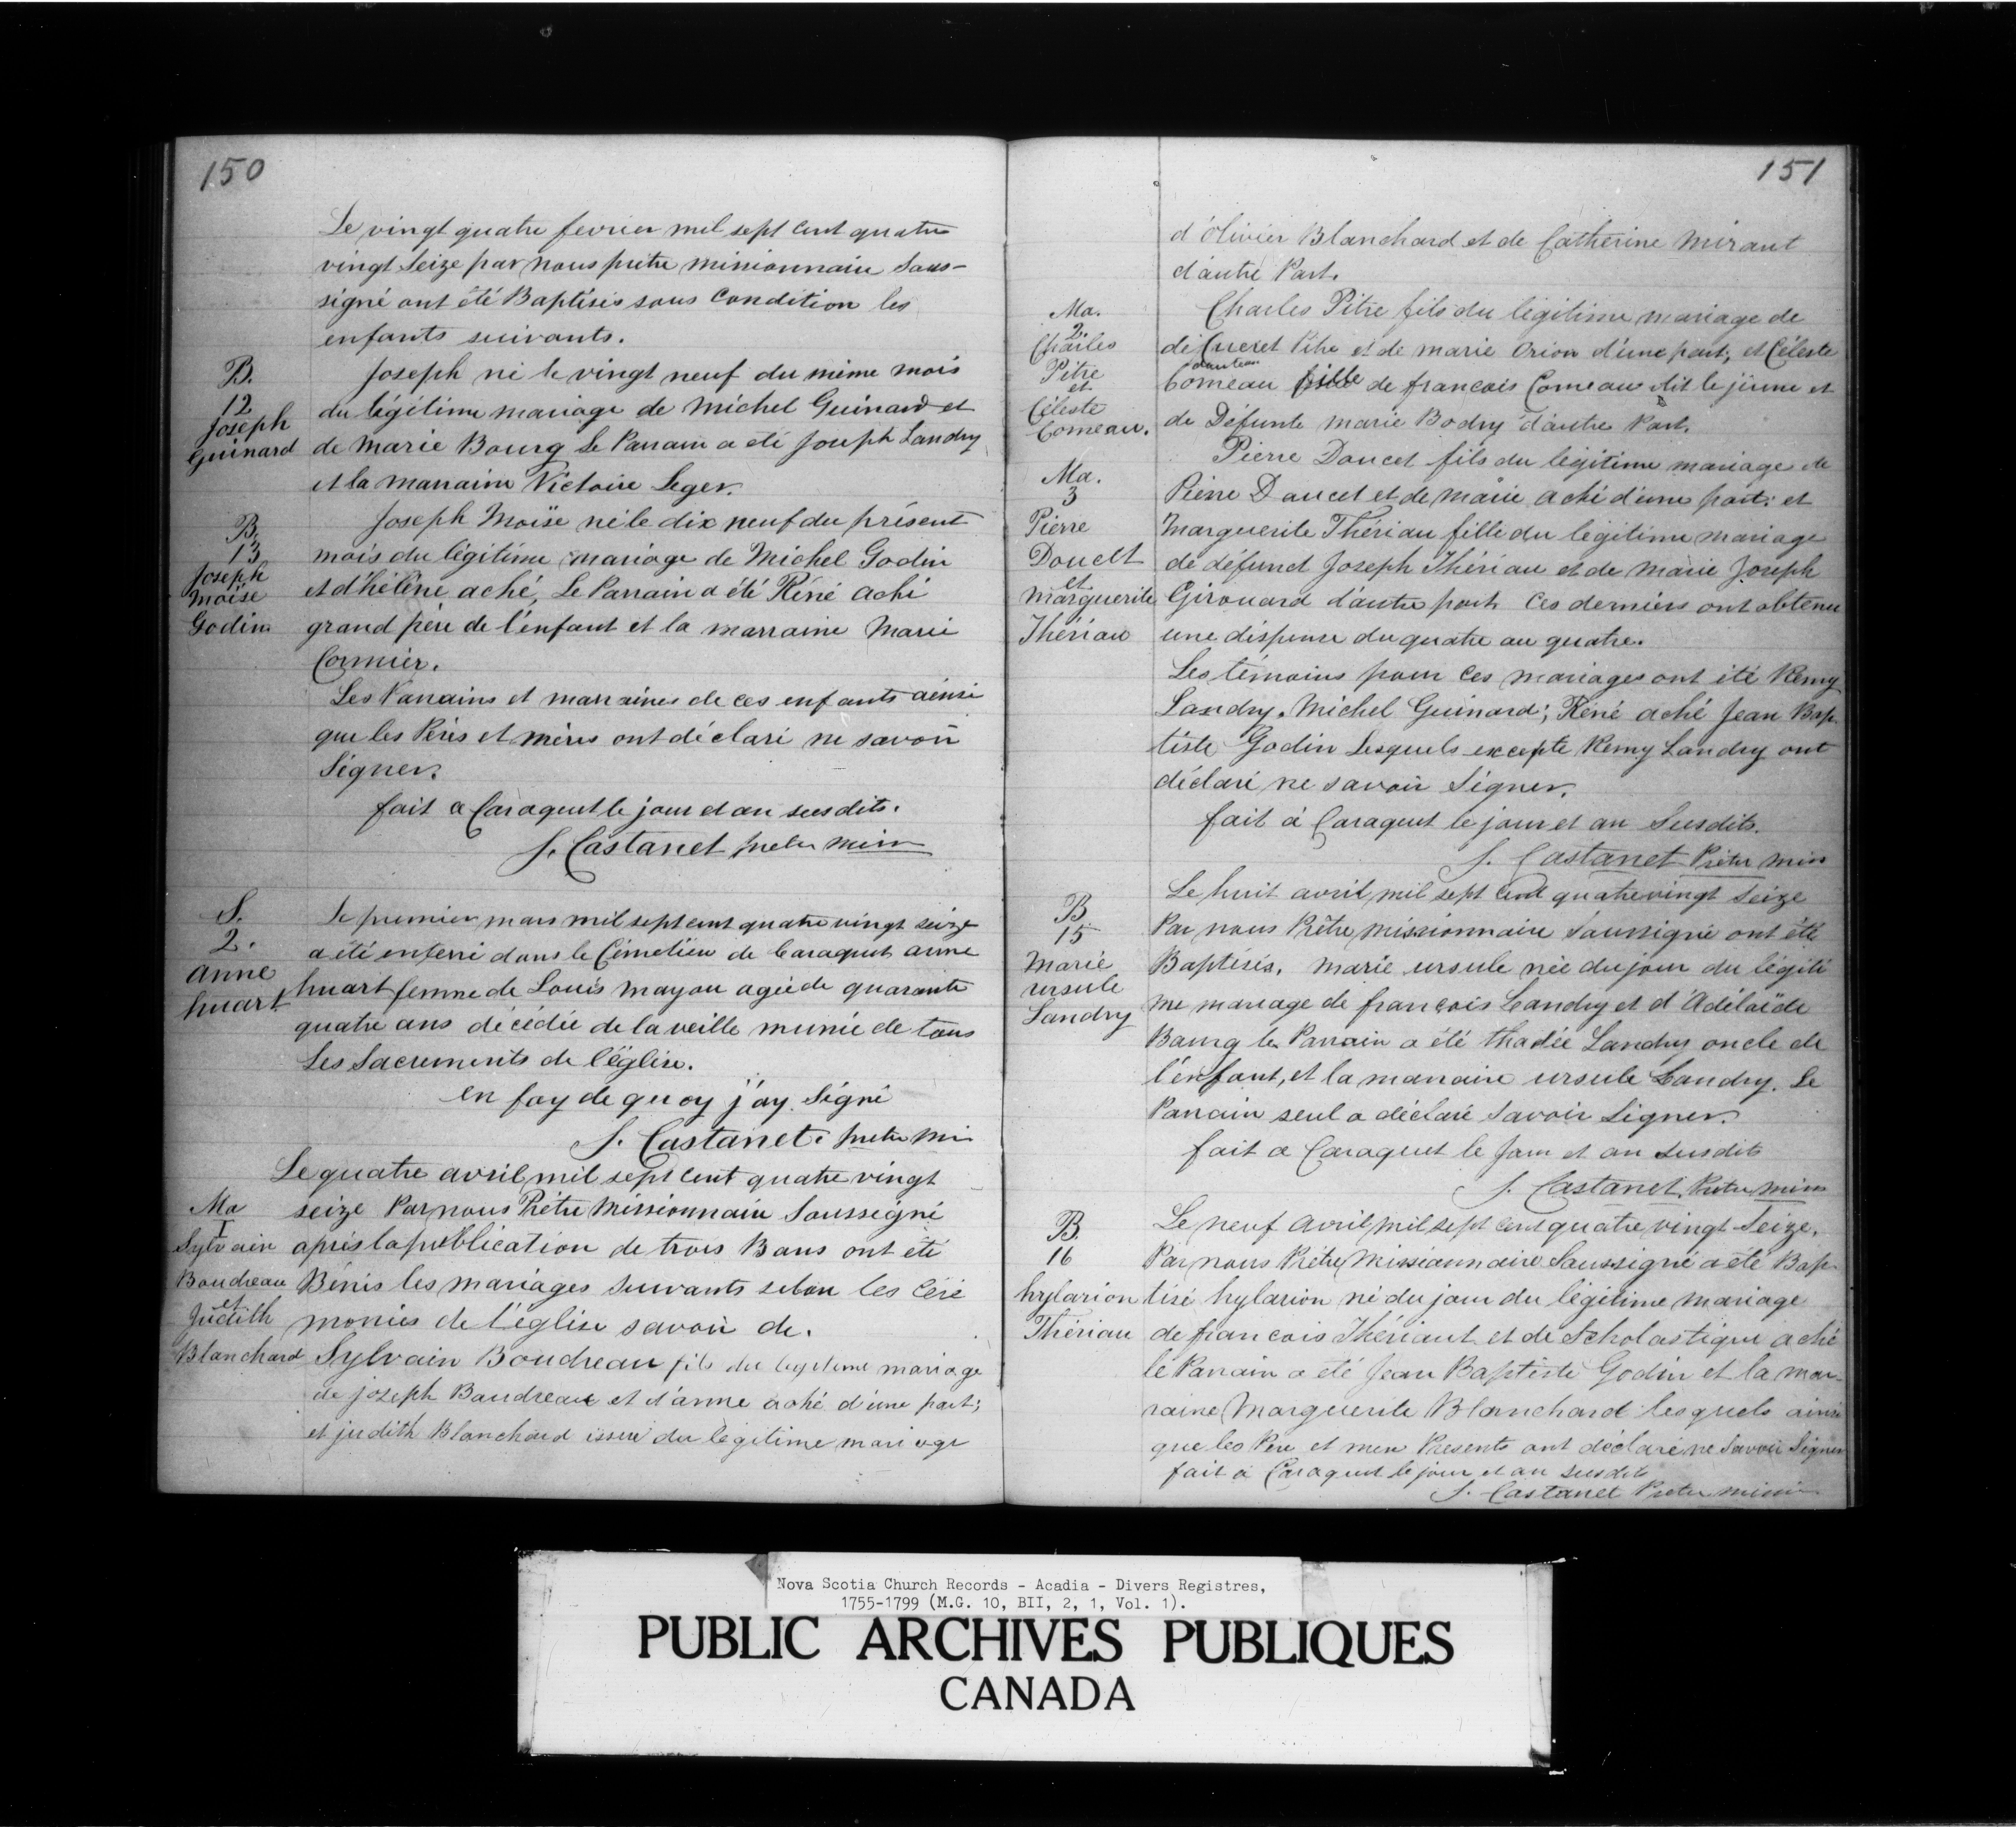 150
Le vingt quatre fevrier mil sept cent quatre
vingt Seize par nous prêtre missionnaire Sous-
signé ont été Baptisés sous Condition les
enfants suivants.
B.
12
Joseph
Guinard
Joseph né le vingt neuf du même mois
du légitime mariage de Michel Guinard et
de Marie Bourg Le Parrain a été Joseph Landry
et la marraine Victoire Leger.
B.
13
Joseph
moïse
Godin
Joseph Moïse né le dix neuf du présent
mois du légitime mariage de Michel Godin
et d'hélène aché, Le Parrain a été Réné aché
grand père de l'enfant et la marraine Marie
Cormier.
Les Parrains et marraines de ces enfants ainsi
que les Pères et mères ont déclaré ne savoir
Signer.
fait a Caraquet le jour et an susdits.
J. Castanet prêtre miss
S.
2.
anne
huart
Le premier mars mil sept cent quatre vingt seize
a été enterré dans le Cimetière de Caraquet anne
huart femme de Louis mayou agée de quarante
quatre ans décédée de la veille munie de tous
Les Sacrements de l'église.
en foy de quoy j'ay Signé
J. Castanet. pretre mi
Le quatre avril mil sept cent quatre vingt
Ma
1
Sylvain
Boudreau
et
Judith
Blanchard
seize Par nous Prêtre Missionnaire Soussigné
après la publication de trois Bans ont été
Bénis les mariages suivants selon les céré
monies de l'église savoir de.
Sylvain Boudreau fils du legitime mariage
de joseph Baudreau et d'anne aché d'une part;
et judith Blanchard issue du legitime mariage
151
d'olivier Blanchard et de Catherine Mirant
d'autre Part.
Ma.
2.
Charles
Pitre
et
Céleste
Comeau.
Charles Pitre fils du légitime mariage de
de Cueret Pitre et de marie Orion d'une part; et Céleste
Comeau fille de francois Comeau dit le jeune et
de Défunte marie Bodry d'autre Part.
Ma.
3
Pierre
Doucet
et
marguerite
Thériau
Pierre Doucet fils du légitime mariage de
Pierre Doucet et de marie aché d'une part: et
Marguerite Thériau fille du légitime mariage
de défunct Joseph Thériau et de marie Joseph
Girouard d'autre part. Ces derniers ont obtenu
une dispense du quatre au quatre.
Les témoins pour ces mariages ont été Remy
Landry. Michel Guinard; Réné aché Jean Bap
tiste Godin Lesquels excepté Remy Landry ont
déclaré ne savoir Signer.
fait à Caraquet le jour et an Susdits.
J. Castanet Prêtre miss
B
15
Marie
ursule
Landry
Le huit avril mil sept cent quatre vingt Seize
Par nous Prêtre missionnaire Soussigné ont été
Baptisés, marie ursule née du jour du légiti
me mariage de françois Landry et d'Adélaïde
Bourg le Parrain a été thadée Landry oncle de
l'enfant, et la marraine ursule Landry. Le
Parrain seul a déclaré savoir Signer.
fait a Caraquet le Jour et an susdits
J. Castanet, Prêtre miss
B.
16
hylarion
Thériau
Le neuf avril mil sept cent quatre vingt Seize.
Par nous Prêtre Missionnaire Soussigné a été Bap-
tisé hylarion né du jour du légitime mariage
de francois Thériaut et de Scholastique aché
le Parrain a été Jean Baptiste Godin et la mar-
raine Marguerite Blanchard lesquels ainsi
que les Pere et mere Presents ont déclaré ne Savoir Signer
fait à Caraquet le jour et an susdits
J. Castanet Pretre missi
Nova Scotia Church Records - Acadia - Divers Registres,
1755-1799 (M.G. 10, BII, 2, 1, Vol. 1).
PUBLIC ARCHIVES PUBLIQUES
CANADA